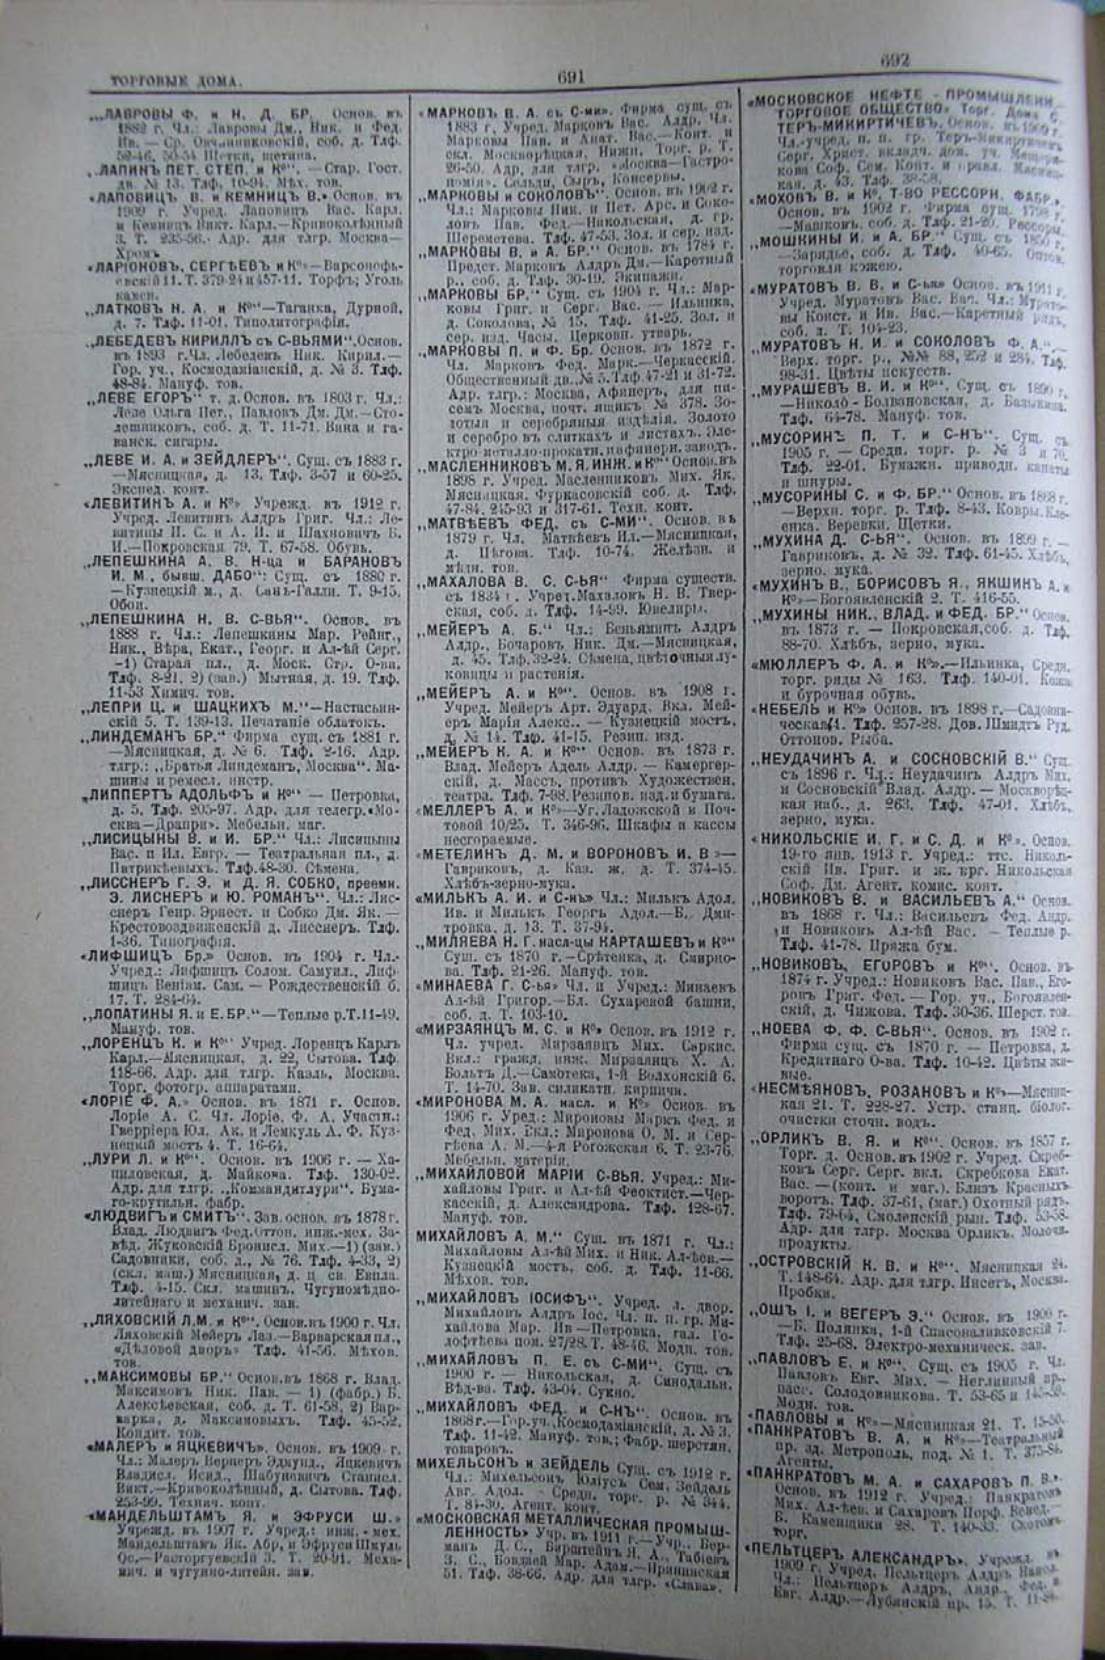 ТОРГОВЫЕ ДОМА.
691
692
„ЛАВРОВЫ Ф. и Н. Д. БР. Основ. въ
1882 г. Чл.: Лавровы Дм., Ник. и Фед.
Ив. — Ср. Овчинниковскій, соб. д. Тлф.
Щетки, щетина.
„ЛАПИНЪ ПЕТ. СТЕП. и К°“. — Стар. Гост.
дв. № 13. Тлф. 10-94. Мѣх. тов.
«ЛАПОВИЦЪ В. и КЕМНИЦЪ В.» Основ. въ
1909 г. Учред. Лаповицъ Вас. Карл.
и Кемницъ Викт. Карл.—Кривоколѣнный
3. Т. 235-56. Адр. для тлгр. Москва—
Хромъ
«ЛАРІОНОВЪ, СЕРГѢЕВЪ и К°»—Варсонофь-
евскій 11. Т. 379-24 и 457-11. Торфъ; Уголь
камен.
„ЛАТКОВЪ Н. А. и К°“—Таганка, Дурной,
д. 7. Тлф. 11-01. Типолитографія.
„ЛЕБЕДЕВЪ КИРИЛЛЪ съ С-ВЬЯМИ“. Основ.
въ 1893 г. Чл. Лебедевъ Ник. Кирил.—
Гор. уч., Космодаміанскій, д. № 3. Тлф.
48-84. Мануф. тов.
„ЛЕВЕ ЕГОРЪ“ т. д. Основ. въ 1803 г. Чл.:
Леве Ольга Пет., Павловъ Дм. Дм.—Сто-
лешниковъ, соб. д. Т. 11-71. Вина и га-
ванск. сигары.
„ЛЕВЕ И. А. и ЗЕЙДЛЕРЪ“. Сущ. съ 1883 г.
—Мясницкая, д. 13. Тлф. 3-57 и 60-25.
Экспед. конт.
«ЛЕВИТИНЪ А. и К°» Учрежд. въ 1912 г.
Учред. Левитинъ Алдръ Григ. Чл.: Ле-
витины П. С. и А. И. и Шахновичъ Б.
И.—Покровская 79. Т. 67-58. Обувь.
„ЛЕПЕШКИНА А. В. Н-ца и БАРАНОВЪ
И. М., бывш. ДАБО“: Сущ. съ 1880 г.
—Кузнецкій м., д. Санъ-Галли. Т. 9-15.
Обои.
„ЛЕПЕШКИНА Н. В. С-ВЬЯ“. Основ. въ
1888 г. Чл.: Лепешкины Мар. Рейнг.,
Ник., Вѣра, Екат., Георг. и Ал-ѣй Серг.
—1) Старая пл., д. Моск. Стр. О-ва.
Тлф. 8-21. 2) (зав.) Мытная, д. 19. Тлф.
11-53 Химич. тов.
„ЛЕПРИ Ц. и ШАЦКИХЪ М.“—Настасьин-
скій 5. Т. 139-13. Печатаніе облатокъ.
„ЛИНДЕМАНЪ БР.“ Фирма сущ. съ 1881 г.
—Мясницкая, д. № 6. Тлф. 2-16. Адр.
тлгр.: „Братья Линдеманъ, Москва“. Ма-
шины и ремесл. инстр.
„ЛИППЕРТЪ АДОЛЬФЪ и К°“ — Петровка,
д. 5. Тлф. 205-97. Адр. для телегр. «Мо-
сква—Драпри». Мебельн. маг.
„ЛИСИЦЫНЫ В. и И. БР.“ Чл.: Лисицыны
Вас. и Ил. Евгр. — Театральная пл., д.
Патрикѣевыхъ. Тлф. 48-30. Сѣмена.
„ЛИССНЕРЪ Г. Э. и Д. Я. СОБКО, преемн.
Э. ЛИСНЕРЪ и Ю. РОМАНЪ“. Чл.: Лис-
снеръ Генр. Эрнест. и Собко Дм. Як. —
Крестовоздвиженскій д. Лисснеръ. Тлф.
1-36. Типографія.
«ЛИФШИЦЪ Бр.» Основ. въ 1904 г. Чл.-
Учред.: Лифшицъ Солом. Самуил., Лиф-
шицъ Веніам. Сам. — Рождественскій б.
17. Т. 284-64.
„ЛОПАТИНЫ Я. и Е. БР.“—Теплые р. Т. 11-49.
Мануф. тов.
„ЛОРЕНЦЪ К. и К°“ Учред. Лоренцъ Карлъ
Карл.—Мясницкая, д. 22, Сытова. Тлф.
118-66. Адр. для тлгр. Казль, Москва.
Торг. фотогр. аппаратами.
«ЛОРІЕ Ф. А.» Основ. въ 1871 г. Основ.
Лоріе А. С. Чл. Лоріе, Ф. А. Участн.:
Гверріера Юл. Ак. и Лемкуль А. Ф. Куз-
нецкій мостъ 4. Т. 16-64.
„ЛУРИ Л. и К°“. Основ. въ 1906 г. — Ха-
пиловская, д. Майкова. Тлф. 130-02.
Адр. для тлгр. „Коммандитлури“. Бума-
го-крутильн. фабр.
«ЛЮДВИГЪ и СМИТЪ“. Зав. основ. въ 1878 г.
Влад. Людвигъ Фед. Оттон. инж.-мех. За-
вѣд. Жуковскій Бронисл. Мих.—1) (зав.)
Садовники, соб. д., № 76. Тлф. 4-33, 2)
(скл. маш.) Мясницкая, д. ц. св. Евпла.
Тлф. 4-15. Скл. машинъ. Чугуномѣдно-
литейнаго и механич. зав.
„ЛЯХОВСКІЙ Л. М. и К°“. Основ. въ 1900 г. Чл.
Ляховскій Мейеръ Лаз.—Варварская пл.,
«Дѣловой дворъ» Тлф. 41-56. Мѣхов.
тов.
„МАКСИМОВЫ БР.“ Основ. въ 1868 г. Влад.
Максимовъ Ник. Пав. — 1) (фабр.) Б.
Алексѣевская, соб. д. Т. 61-58, 2) Вар-
варка, д. Максимовыхъ. Тлф. 45-52.
Кондит. тов.
«МАЛЕРЪ и ЯЦКЕВИЧЪ». Основ. въ 1909 г.
Чл.: Малеръ Вернеръ Эдмунд., Яцкевичъ
Владисл. Исид., Шабуневичъ Станисл.
Викт.—Кривоколѣнный, д. Сытова. Тлф.
253-99. Технич. конт.
«МАНДЕЛЬШТАМЪ Я. и ЭФРУСИ Ш.»
Учрежд. въ 1907 г. Учред.: инж.-мех.
Мандельштамъ Як. Абр. и Эфруси Шмуль
Ос.—Расторгуевскій 3. Т. 20-91. Меха-
нич. и чугунно-литейн. зав.
«МАРКОВЪ В. А. съ С-ми». Фирма сущ. съ
1883 г. Учред. Марковъ Вас. Алдр. Чл.
Марковы Пав. и Анат. Вас.—Конт. и
скл. Москворѣцкая, Нижн. Торг. р. Т.
26-50. Адр. для тлгр. «Москва—Гастро-
номія». Сельди, Сыръ, Консервы.
„МАРКОВЫ и СОКОЛОВЪ“. Основ. въ 1902 г.
Чл.: Марковы Ник. и Пет. Арс. и Соко-
ловъ Пав. Фед.—Никольская, д. гр.
Шереметева. Тлф. 47-53. Зол. и сер. изд.
„МАРКОВЫ В. и А. БР.“ Основ. въ 1784 г.
Предст. Марковъ Алдръ Дм.—Каретный
р., соб. д. Тлф. 30-19. Экипажи.
„МАРКОВЫ БР.“ Сущ. съ 1904 г. Чл.: Мар-
ковы Григ. и Серг. Вас. — Ильинка,
д. Соколова, № 15. Тлф. 41-25. Зол. и
сер. изд. Часы. Церковн. утварь.
„МАРКОВЫ П. и Ф. Бр. Основ. въ 1872 г.
Чл. Марковъ Фед. Марк.—Черкасскій.
Общественный дв., № 5. Тлф. 47-21 и 31-72.
Адр. тлгр.: Москва, Афинеръ, для пи-
семъ Москва, почт. ящикъ № 378. Зо-
лотыя и серебряныя издѣлія. Золото
и серебро въ слиткахъ и листахъ. Эле-
ктро-металло-прокатн. и афинерн. заводъ.
„МАСЛЕННИКОВЪ М. Я. ИНЖ. и К°“ Основ. въ
1898 г. Учред. Масленниковъ Мих. Як.
Мясницкая. Фуркасовскій соб. д. Тлф.
47-84. 245-93 и 317-61. Техн. конт.
„МАТВѢЕВЪ ФЕД. съ С-МИ“. Основ. въ
1879 г. Чл. Матвѣевъ Ил.—Мясницкая,
д. Цѣгова. Тлф. 10-74. Желѣзн. и
мѣдн. тов.
„МАХАЛОВА В. С. С-ЬЯ“ Фирма существ.
съ 1834 г. Учред. Махаловъ Н. В. Твер-
ская, соб. д. Тлф. 14-99. Ювелиры.
„МЕЙЕРЪ А. Б.“ Чл.: Беньяминъ Алдръ
Алдр., Бочаровъ Ник. Дм.—Мясницкая,
д. 45. Тлф. 32-24. Сѣмена, цвѣточныя лу-
ковицы и растенія.
„МЕЙЕРЪ А. и К°“. Основ. въ 1908 г.
Учред. Мейеръ Арт. Эдуард. Вкл. Мей-
еръ Марія Алекс. — Кузнецкій мостъ,
д. № 14. Тлф. 41-15. Резин. изд.
„МЕЙЕРЪ К. А. и К°“ Основ. въ 1873 г.
Влад. Мейеръ Адель Алдр. — Камергер-
скій, д. Массъ, противъ Художествен.
театра. Тлф. 7-98. Резинов. изд. и бумага.
«МЕЛЛЕРЪ А. и К°»—Уг. Ладожской и Поч-
товой 10/25. Т. 346-96. Шкафы и кассы
несгораемые.
«МЕТЕЛИНЪ Д. М. и ВОРОНОВЪ И. В »—
Гавриковъ, д. Каз. ж. д. Т. 374-45.
Хлѣбъ-зерно-мука.
«МИЛЬКЪ А. И. и С-нъ» Чл.: Милькъ Адол.
Ив. и Милькъ Георгъ Адол.—Б. Дми-
тровка, д. 13. Т. 37-94.
„МИЛЯЕВА Н. Г. насл-цы КАРТАШЕВЪ и К°“
Сущ. съ 1870 г. —Срѣтенка, д. Смирно-
ва. Тлф. 21-26. Мануф. тов.
«МИНАЕВА Г. С-ья» Чл. и Учред.: Минаевъ
Ал-ѣй Григор.—Бл. Сухаревой башни,
соб. д. Т. 103-10.
«МИРЗАЯНЦЪ М. С. и К°» Основ. въ 1912 г.
Чл. учред. Мирзаянцъ Мих. Саркис.
Вкл.: гражд. инж. Мирзаянцъ Х. А.
Вольтъ Д.—Самотека, 1-й Волхонскій 6.
Т. 14-70. Зав. силикатн. кирпичн.
«МИРОНОВА М. А. насл. и К°» Основ. въ
1906 г. Уред.: Мироновы Маркъ Фед. и
Фед. Мих. Вкл.: Миронова О. М. и Сер-
гѣева А. М.—4-я Рогожская 6. Т. 23-76.
Мебельн. матерія.
„МИХАЙЛОВОЙ МАРІИ С-ВЬЯ. Учред.: Ми-
хайловы Григ. и Ал-ѣй Феоктист.—Чер-
касскій, д. Александрова. Тлф. 128-67.
Мануф. тов.
МИХАЙЛОВЪ А. М.“ Сущ. въ 1871 г. Чл.:
Михайловы Ал-ѣй Мих. и Ник. Ал-ѣев.—
Кузнецкій мостъ, соб. д. Тлф. 11-66.
Мѣхов. тов.
„МИХАЙЛОВЪ ІОСИФЪ“. Учред. л. двор.
Михайловъ Алдръ Іос. Чл. п. п. гр. Ми-
хайлова Мар. Ив—Петровка, гал. Го-
лофтѣева пом. 27/28. Т. 48-46. Модн. тов.
„МИХАЙЛОВЪ П. Е. съ С-МИ“. Сущ. съ
1900 г. — Никольская, д. Синодальн.
Вѣд-ва. Тлф. 43-04. Сукно.
„МИХАЙЛОВЪ ФЕД. и С-НЪ“. Основ. въ
1868 г.—Гор. уч., Космодаміанскій, д. № 3.
Тлф. 11-42. Мануф. тов.; Фабр. шерстян.
товаровъ.
МИХЕЛЬСОНЪ и ЗЕЙДЕЛЬ Сущ. съ 1912 г.
Чл.: Михельсонъ Юліусъ Сем. Зейдель
Авг. Адол. — Средн. торг. р. № 344.
Т. 84-30. Агент. конт.
«МОСКОВСКАЯ МЕТАЛЛИЧЕСКАЯ ПРОМЫШ-
ЛЕННОСТЬ» Учр. въ 1911 г.—Учр., Бер-
манъ Д. С., Бурштейнъ Я. А., Табіевъ
З. С., Мар. Адам.—Пр
51. Тлф. 38-66. Адр. для тлгр. «Слава».
«МОСКОВСКОЕ НЕФТЕ-ПРОМЫШЛЕНН.
ТОРГОВОЕ ОБЩЕСТВО» Торг. Дома С.
ТЕРЪ-МИКИРТИЧЕВЪ. Основ. въ г.
Чл.-учред. п. п. гр. Теръ-Микиртичевъ
Серг. Христ. вкладч. дом. уч. Мещеря-
кова Соф. Сем. Конт. и правл. Мясниц-
кая, д. 43. Тлф. 38-58.
«МОХОВЪ В. и К°, Т-ВО РЕССОРН. ФАБР.»
Основ. въ 1902 г. Фирма сущ. 1798 г.
—Машковъ, соб. д. Тлф. 21-20. Рессоры.
„МОШКИНЫ И. и А. БР.“ Сущ. съ 1850 г.
—Зарядье, соб. д. Тлф. 40-65. Оптов.
торговля кожею.
«МУРАТОВЪ В. В. и С-ья» Основ. въ 1911 г.
Учред. Муратовъ Вас. Вас. Чл.: Мурато-
вы Конст. и Ив. Вас.—Каретный рядъ,
соб. д. Т. 104-23.
„МУРАТОВЪ Н. И. и СОКОЛОВЪ Ф. А.“—
Верх. торг. р., №№ 88, 252 и 284. Тлф.
98-31. Цвѣты искусств.
„МУРАШЕВЪ В. И. и К°“. Сущ. съ 1899 г.
—Николо-Болвановская, д. Балыкина.
Тлф. 64-78. Мануф. тов.
„МУСОРИНЪ П. Т. и С-НЪ“. Сущ. съ
1905 г. — Средн. торг. р. № 3 и 70.
Тлф. 22-01. Бумажн. приводн. канаты
и шнуры.
„МУСОРИНЫ С. и Ф. БР.“ Основ. въ 1868 г.
—Верхн. торг. р. Тлф. 8-43. Ковры. Кле-
енка. Веревки. Щетки.
„МУХИНА Д. С-ЬЯ“. Основ. въ 1899 г. —
Гавриковъ, д. № 32. Тлф. 61-45. Хлѣбъ,
зерно, мука.
«МУХИНЪ В., БОРИСОВЪ Я., ЯКШИНЪ А. и
К°»—Богоявленскій 2. Т. 416-55.
«МУХИНЫ НИК., ВЛАД. и ФЕД. БР.“ Основ.
въ 1873 г. — Покровская, соб. д. Тлф.
88-70. Хлѣбъ, зерно, мука.
«МЮЛЛЕРЪ Ф. А. и К°».—Ильинка, Средн.
торг. ряды № 163. Тлф. 140-01. Кожа
и бурочная обувь.
«НЕБЕЛЬ и К°» Основ. въ 1898 г.—Садовни-
ческая, 41. Тлф. 257-28. Дов. Шмидтъ Руд.
Оттонов. Рыба.
„НЕУДАЧИНЪ А. и СОСНОВСКІЙ В.“ Сущ.
съ 1896 г. Чл.: Неудачинъ Алдръ Мих.
и Сосновскій Влад. Алдр. — Москворѣц-
кая наб., д. 263. Тлф. 47-01. Хлѣбъ,
зерно, мука.
«НИКОЛЬСКІЕ И. Г. и С. Д. и К°». Основ.
19-го янв. 1913 г. Учред.: ттс. Николь-
скій Ив. Григ. и ж. врг. Никольская
Соф. Дм. Агент. комис. конт.
„НОВИКОВЪ В. и ВАСИЛЬЕВЪ А.“ Основ.
въ 1868 г. Чл.: Васильевъ Фед. Андр.
и Новиковъ Ал-ѣй Вас. — Теплые р.
Тлф. 41-78. Пряжа бум.
„НОВИКОВЪ, ЕГОРОВЪ и К°“. Основ. въ
1874 г. Учред.: Новиковъ Вас. Пав., Его-
ровъ Григ. Фед. — Гор. уч., Богоявлен-
скій, д. Чижова. Тлф. 30-36. Шерст. тов.
„НОЕВА Ф. Ф. С-ВЬЯ“. Основ. въ 1902 г.
Фирма сущ. съ 1870 г. — Петровка, д.
Кредитнаго О-ва. Тлф. 10-42. Цвѣты жи-
вые.
«НЕСМѢЯНОВЪ, РОЗАНОВЪ и К°»—Мясниц-
кая 21. Т. 228-27. Устр. станц. біолог.
очистки сточн. водъ.
„ОРЛИКЪ В. Я. и К°“. Основ. въ 1857 г.
Торг. д. Основ. въ 1902 г. Учред. Скреб-
ковъ Серг. Серг. вкл. Скребкова Екат.
Вас. —(конт. и маг.). Близъ Красныхъ
воротъ. Тлф. 37-61, (маг.) Охотный рядъ.
Тлф. 79-64, Смоленскій рын. Тлф. 53-58.
Адр. для тлгр. Москва Орликъ. Молочн.
продукты.
„ОСТРОВСКІЙ К. В. и К°“. Мясницкая 24.
Т. 148-64. Адр. для тлгр. Инсегъ, Москва.
Пробки.
„ОШЪ І. и ВЕГЕРЪ Э.“ Основ. въ 1900 г.
—Б. Полянка, 1-й Спасоналивковскій 7.
Тлф. 25-68. Электро-механическ. зав.
„ПАВЛОВЪ Е. и К°“. Сущ. съ 1905 г. Чл.
Павловъ Евг. Мих. — Неглинный пр.,
пасс. Солодовникова. Т. 53-65 и
Модн. тов.
«ПАВЛОВЫ и К°»—Мясницкая 21. Т. 15-50.
«ПАНКРАТОВЪ В. А. и К°»—Театральный
пр. зд. Метрополь, под. № 1. Т. 375-86.
Агенты.
«ПАНКРАТОВЪ М. А. и САХАРОВЪ П. В.»
Основ. въ 1912 г. Учред.: Панкратовъ
Мих. Ал-ѣев. и Сахаровъ Порф. Венед.—
Б. Каменщики 28. Т. 140-33. Скотом
торг.
«ПЕЛЬТЦЕРЪ АЛЕКСАНДРЪ». Учрежд. въ
1909 г. Учред. Пельтцеръ Алдръ Павл.
Чл.: Пельтцеръ Алдръ, Андр., Фед. и
Евг. Алдр.—Лубянскій пр. 15. Т.